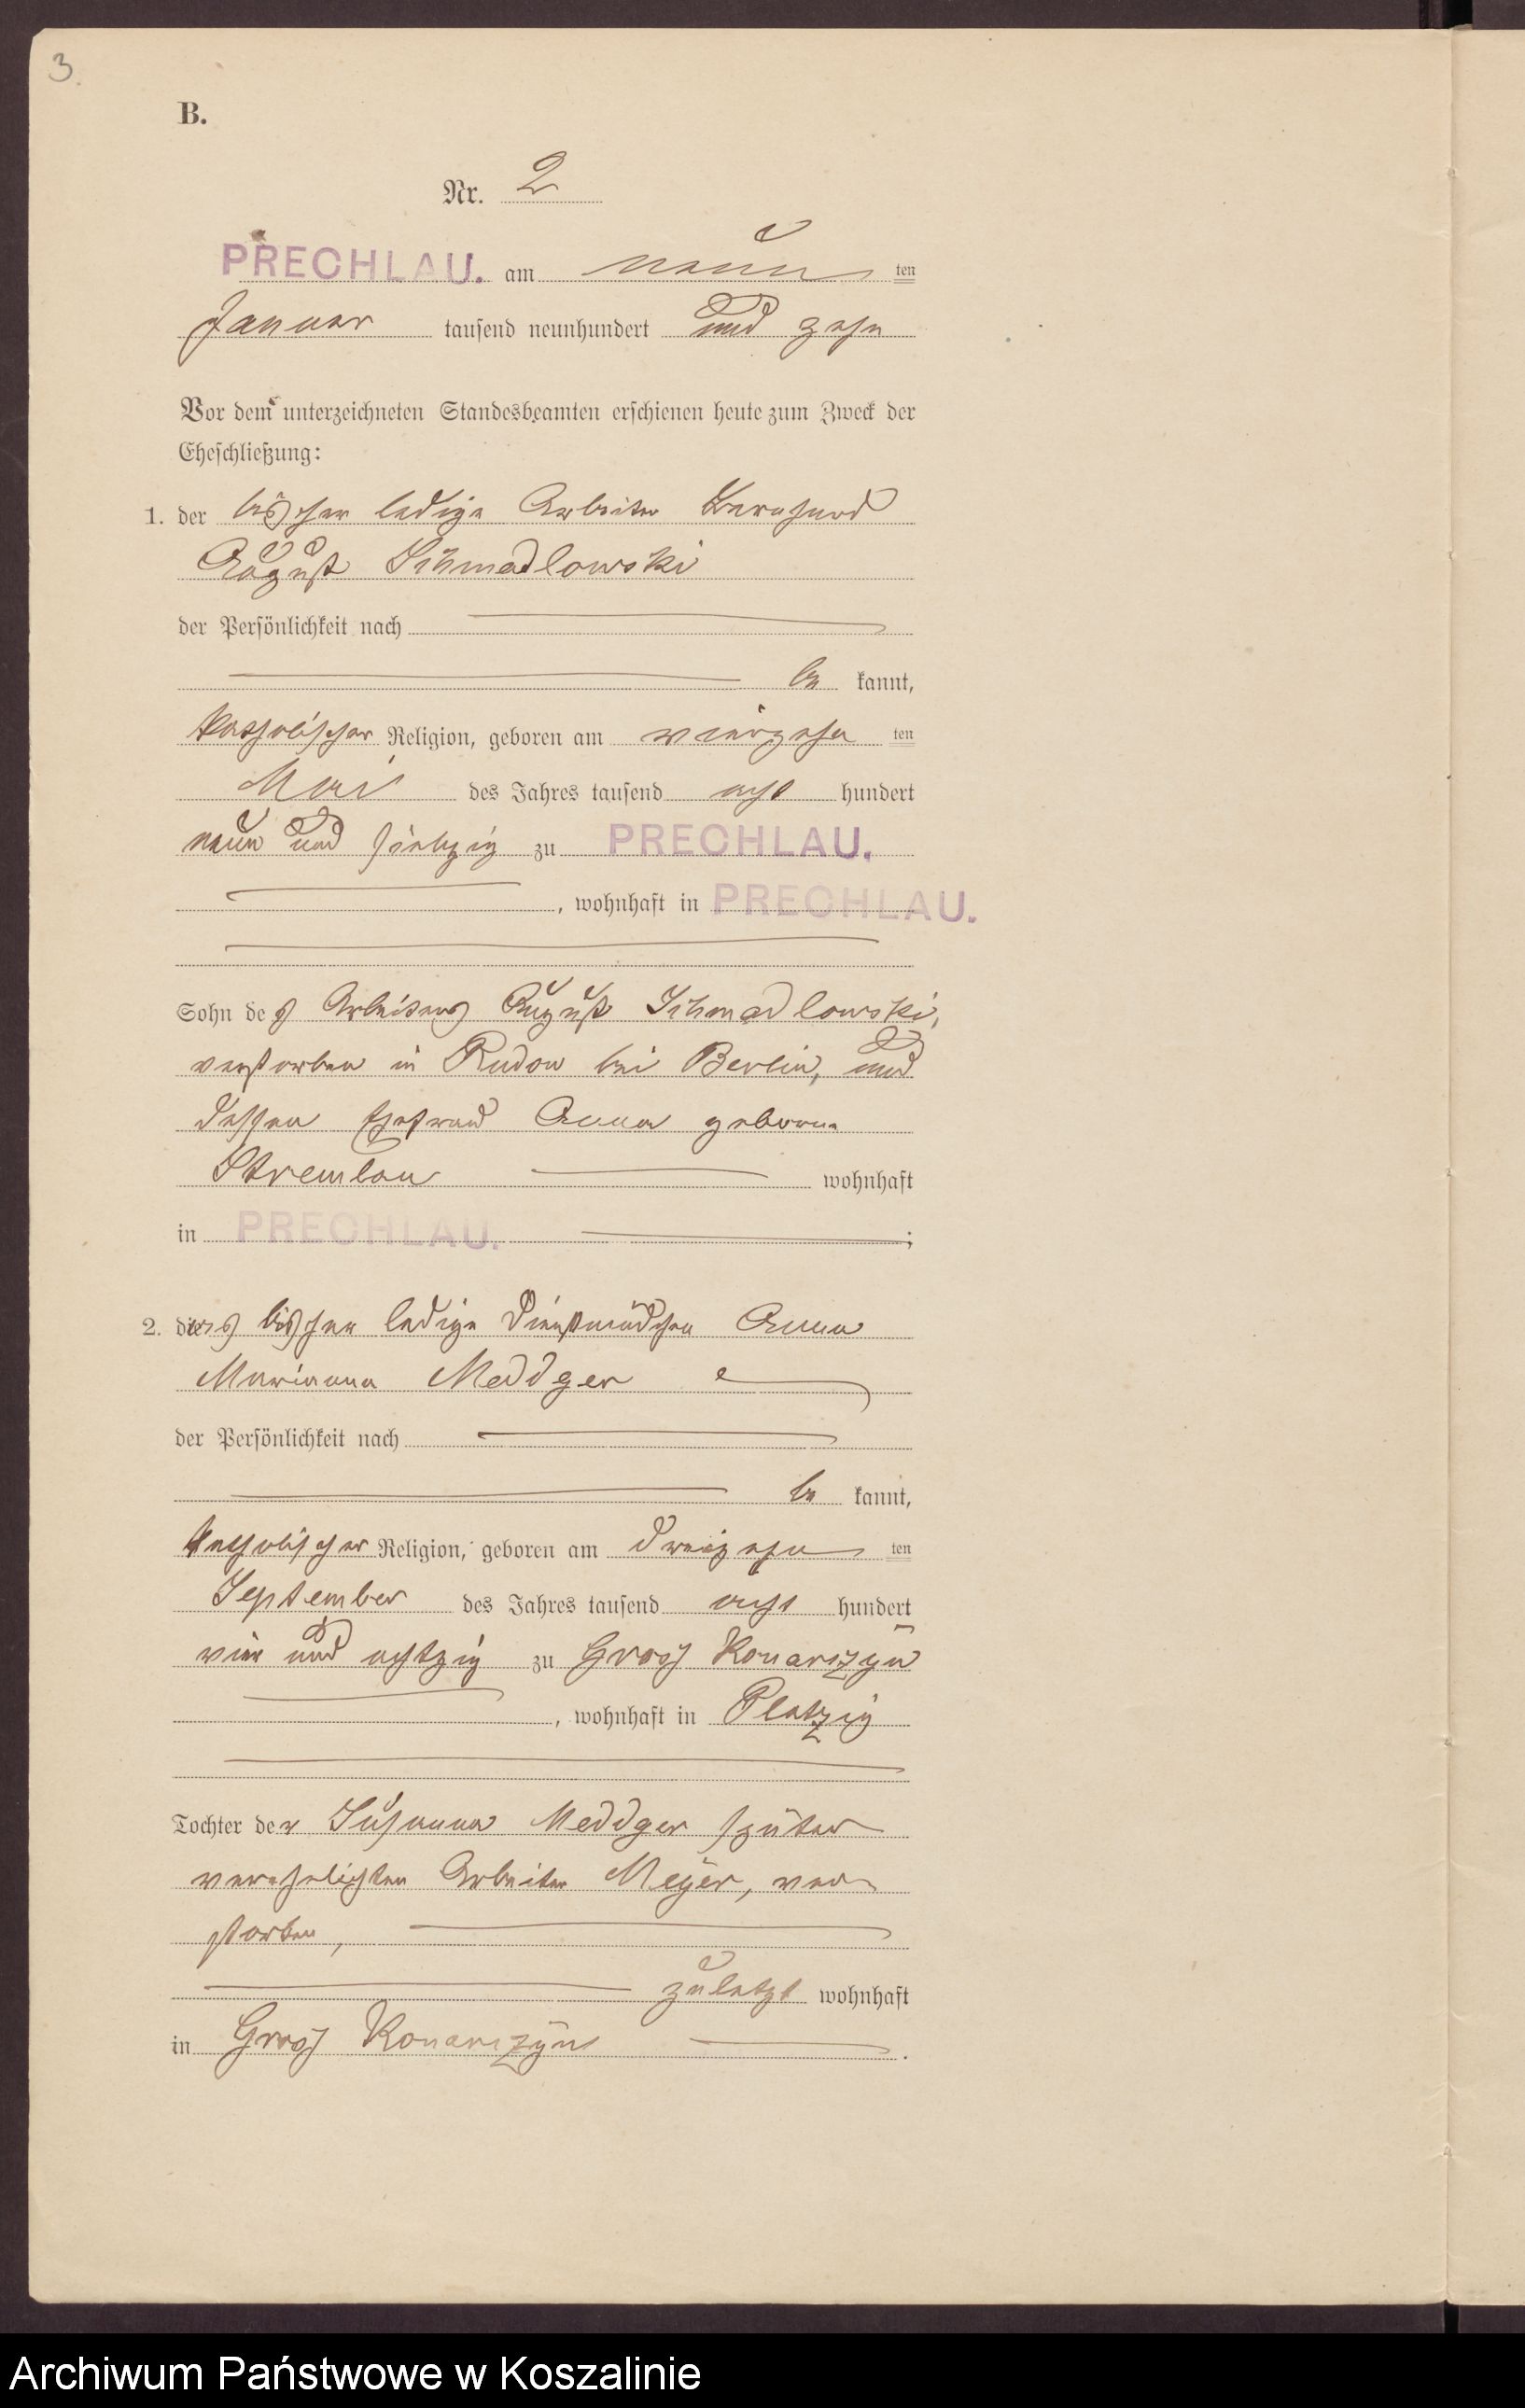 3.
B.
Nr. 2
PRECHLAU. am neun ten
Januar tausend neunhundert und zehn
Vor dem unterzeichneten Standesbeamten erschienen heute zum Zweck der
Eheschließung:
1. der bisher ledige Arbeiter Bernhard
August Schmadlowski
der Persönlichkeit nach
be kannt,
katholischer Religion, geboren am vierzehn ten
Mai des Jahres tausend acht hundert
neun und siebzig zu PRECHLAU.
, wohnhaft in PRECHLAU.
Sohn des Arbeiters August Schmadlowski,
verstorben in Rudow bei Berlin, und
dessen Ehefrau Anna geborene
Stremlau wohnhaft
in PRECHLAU. ;
2. das bisher ledige Dienstmädchen Anna
Marianna Meddger
der Persönlichkeit nach
be kannt,
katholischer Religion, geboren am dreizehn ten
September des Jahres tausend acht hundert
vier und achtzig zu Gross Konarczyn
, wohnhaft in Platzig
Tochter der Susanna Meddger später
verehelichten Arbeiter Meyer, ver
storben,
zuletzt wohnhaft
in Gross Konarczyn .
Archiwum Państwowe w Koszalinie